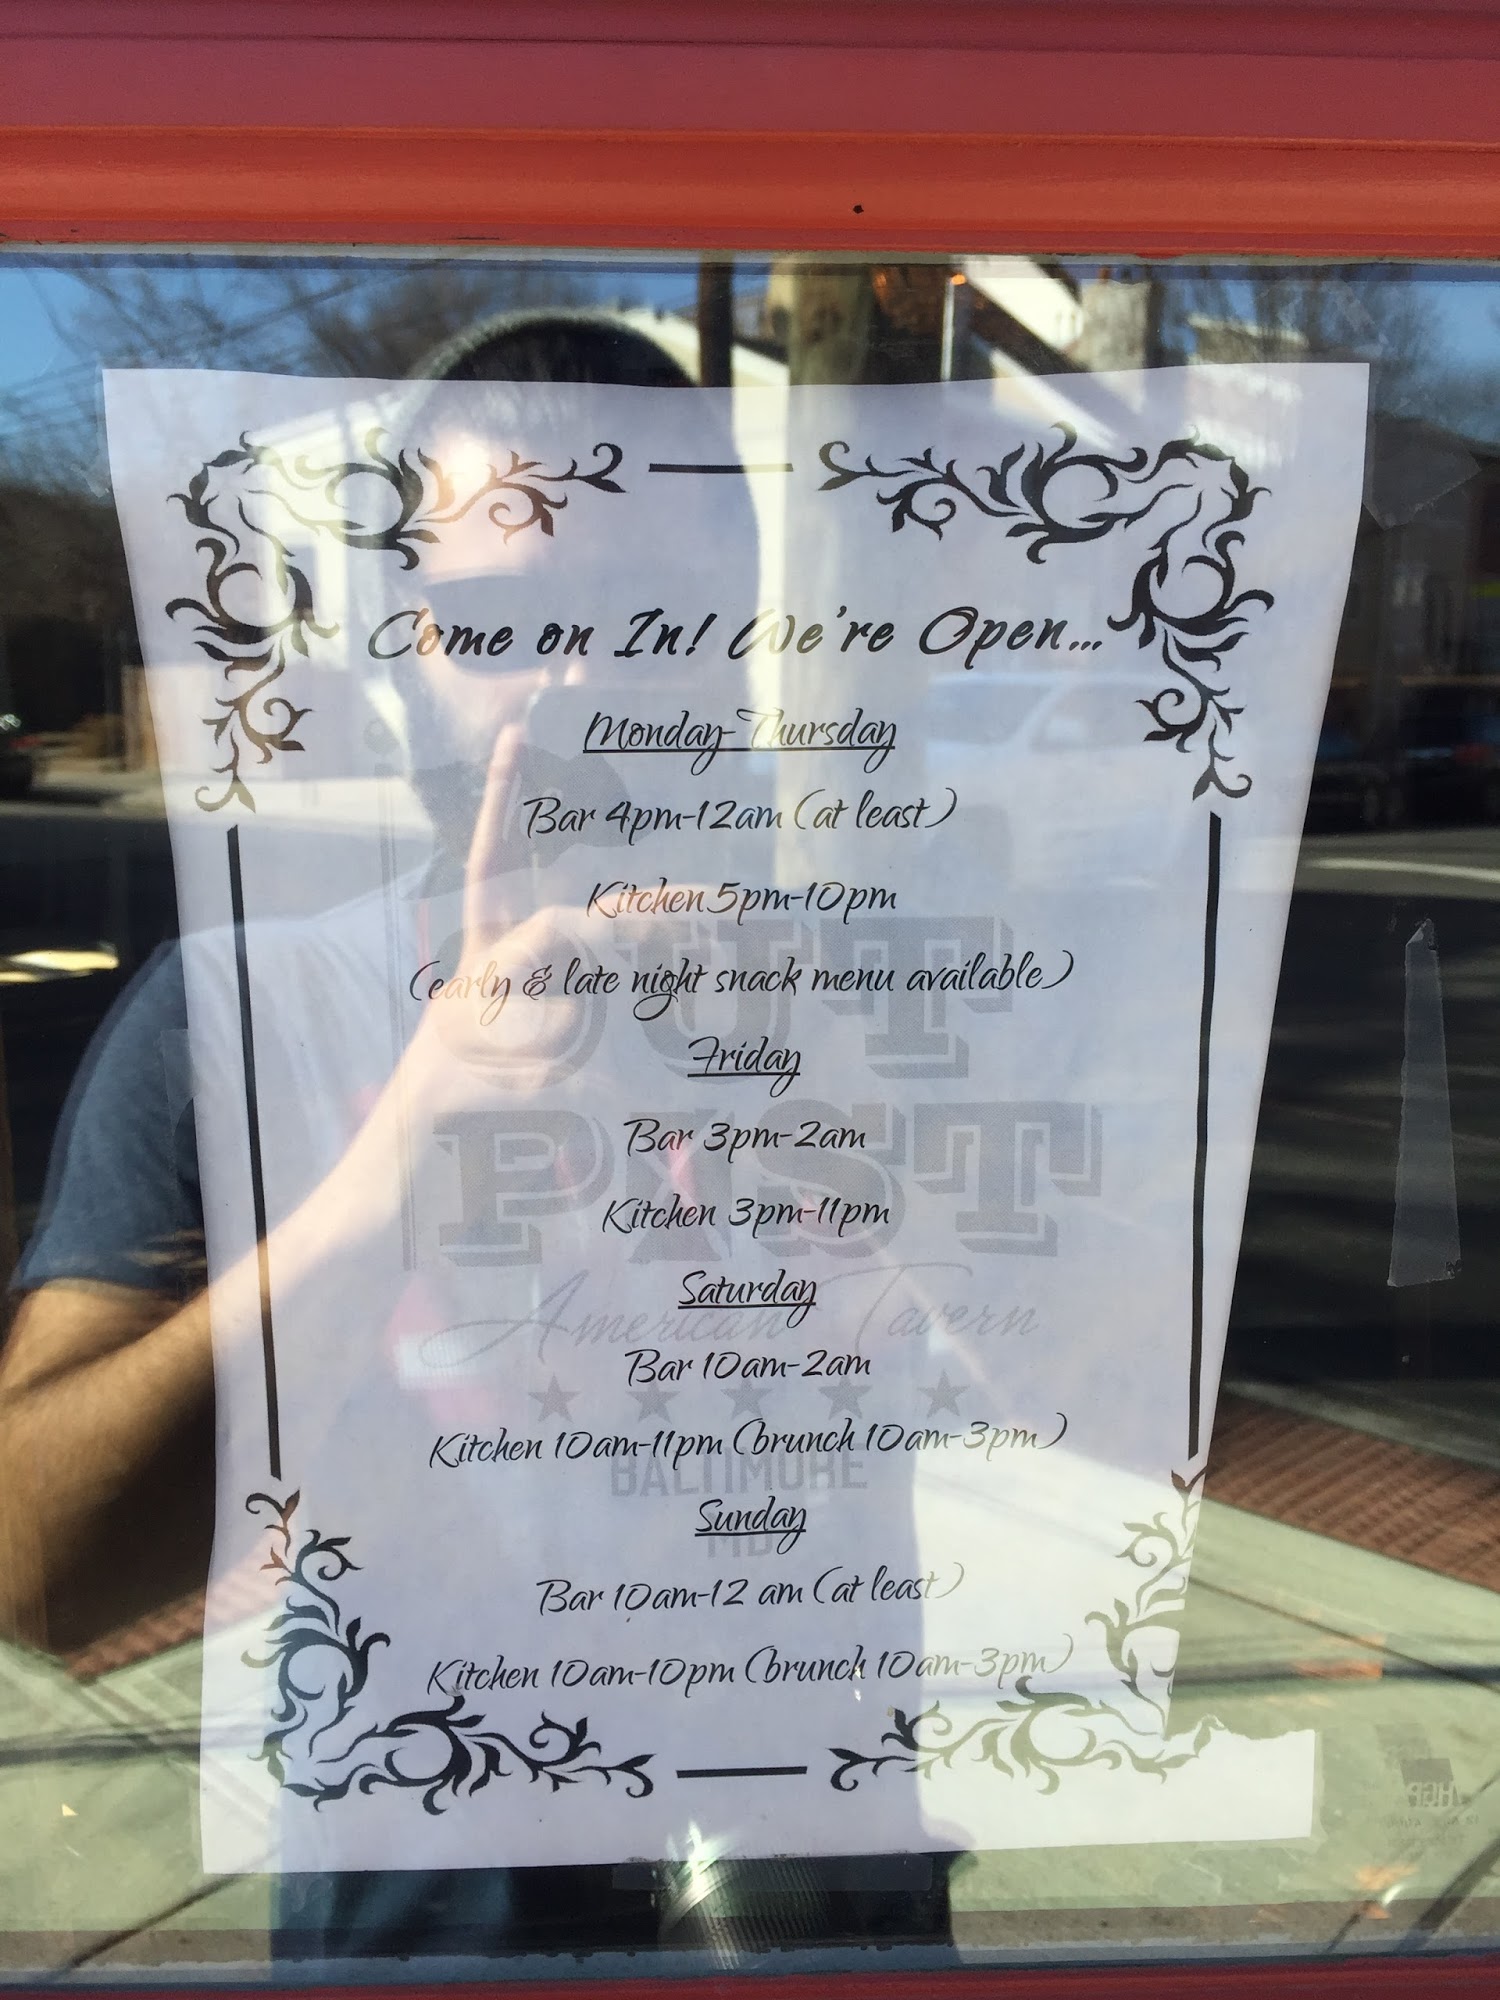 Come on In! We're Open...
Monday-Thursday
Bar 4pm-12am (at least)
Kitchen 5pm-10pm
(early & late night snack menu available)
Friday
Bar 3pm-2am
Kitchen 3pm-11pm
Saturday
Bar 10am-2am
Kitchen 10am-11pm (brunch 10am-3pm)
Sunday
Bar 10am-12 am (at least)
Kitchen 10am-10pm (brunch 10am-3pm)
OUT
POST
American Tavern
BALTIMORE
MD